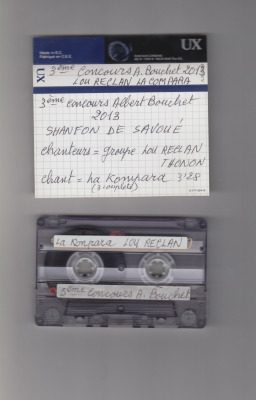 UX
3ème Concours A. Bouchet 2013
LOU RECLAN LA COMPARA
UX
3ème concours Albert Bouchet
2013
SHANFON DE SAVOUÉ
chanteurs = groupe LOU RECLAN
THONON
chant = La Kompara 3'28
(3 couplets)
La Kompara LOU RECLAN
3ème Concours A. Bouchet